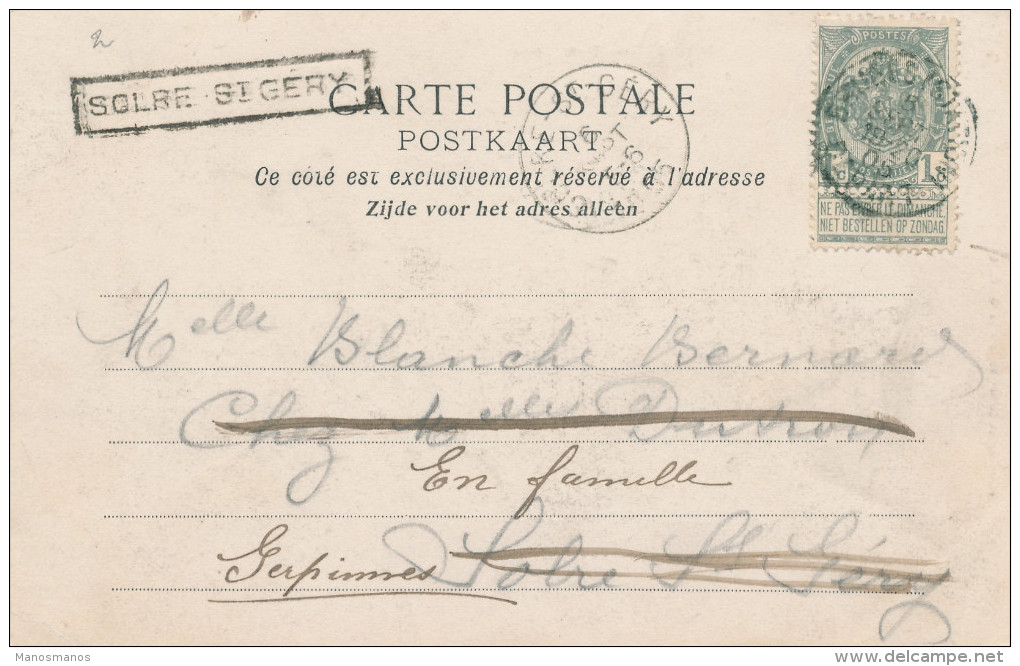 2
SOLRE - ST GÉRY
CARTE POSTALE
POSTKAART
Ce côté est exclusivement réservé à l'adresse
Zijde voor het adres alleen
POSTES
1c 1c
NE PAS LIVRER LE DIMANCHE
NIET BESTELLEN OP ZONDAG
GÉRY
Melle Blanche Bernard
Chez Melle Dutroy
En famille
Gerpinnes Solre St Géry
Manosmanos
delcampe.net